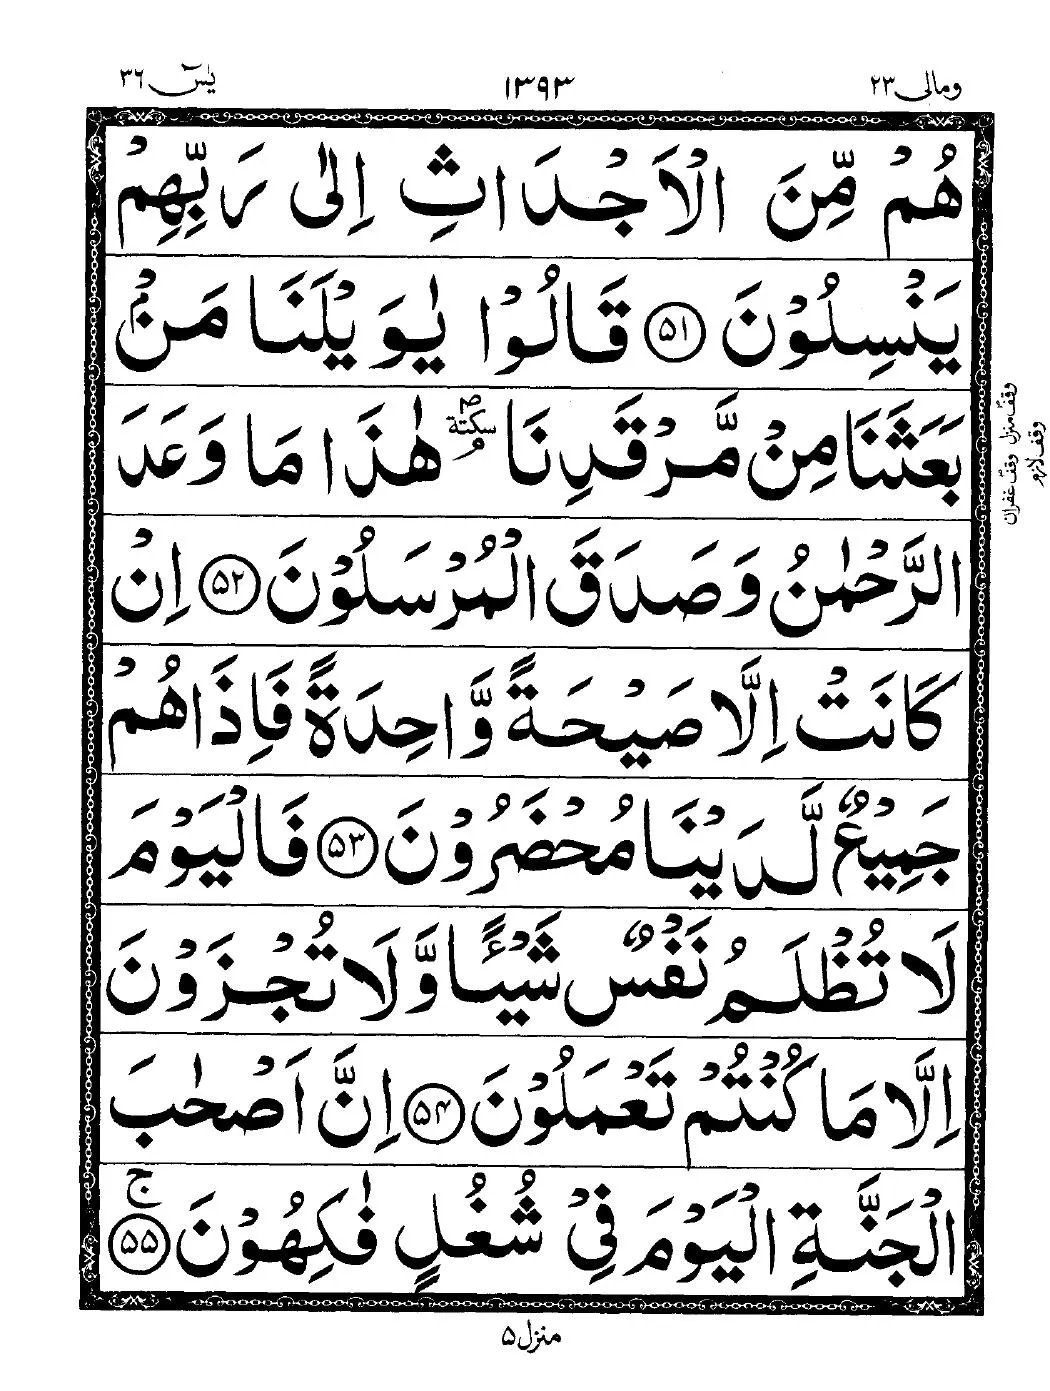 ومالی ۲۳
۱۳۹۳
یٰسٓ ۳۶
هُمْ مِّنَ الْاَجْدَاثِ اِلٰى رَبِّهِمْ
يَنْسِلُوْنَ ۵۱ قَالُوْا يٰوَيْلَنَا مَنْۢ
بَعَثَنَا مِنْ مَّرْقَدِنَا ۘ سكتة هٰذَا مَا وَعَدَ
الرَّحْمٰنُ وَصَدَقَ الْمُرْسَلُوْنَ ۵۲ اِنْ
كَانَتْ اِلَّا صَيْحَةً وَّاحِدَةً فَاِذَا هُمْ
جَمِيْعٌ لَّدَيْنَا مُحْضَرُوْنَ ۵۳ فَالْيَوْمَ
لَا تُظْلَمُ نَفْسٌ شَيْـًٔا وَّلَا تُجْزَوْنَ
اِلَّا مَا كُنْتُمْ تَعْمَلُوْنَ ۵۴ اِنَّ اَصْحٰبَ
الْجَنَّةِ الْيَوْمَ فِيْ شُغُلٍ فٰكِهُوْنَ ۵۵ ج
وقف منزل وقف غفران
وقف لازم
منزل ۵